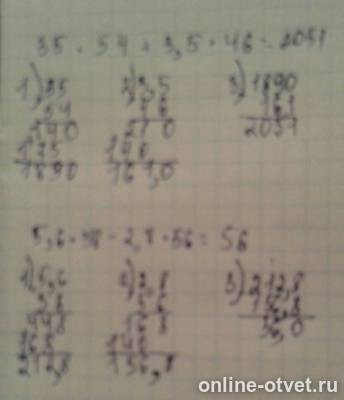 35 · 54 + 3,5 · 46 = 2051
1) 35 2) 3,5 3) 1890
54 46 161
140 210 2051
175 140
1890 161,0
5,6 · 38 - 2,8 · 56 = 56
1) 5,6 2) 2,8 3) 212,8
38 56 156,8
448 168 56,0
168 140
212,8 156,8
online-otvet.ru